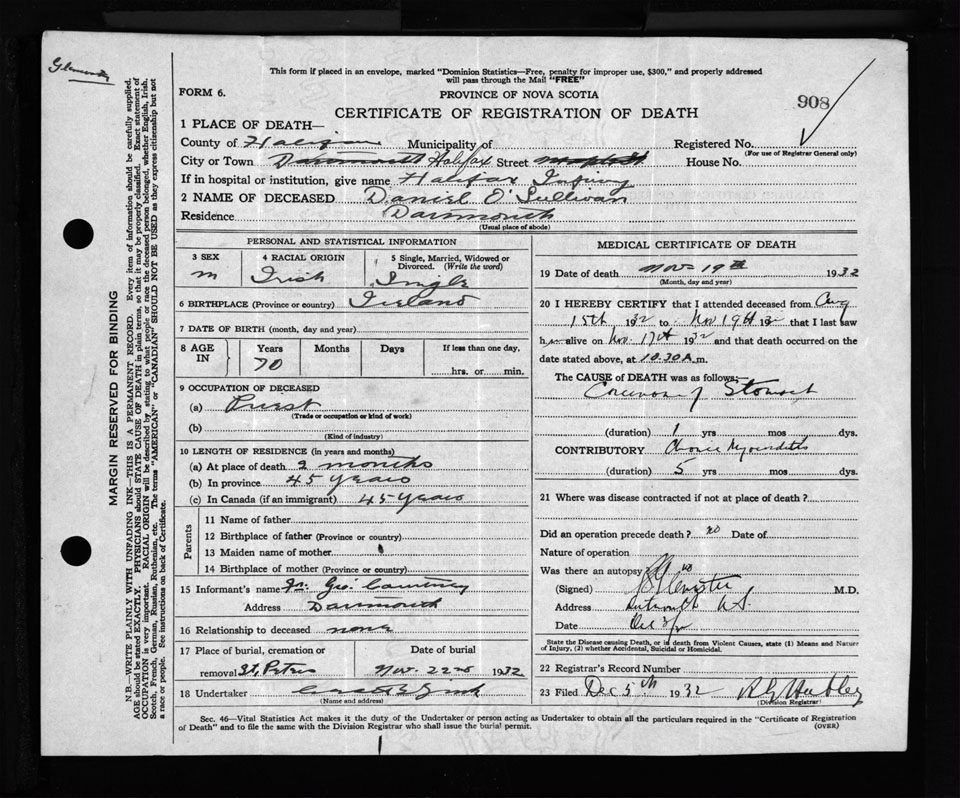 This form if placed in an envelope, marked "Dominion Statistics—Free, penalty for improper use, $300," and properly addressed
will pass through the Mail "FREE"
FORM 6.
PROVINCE OF NOVA SCOTIA
908
CERTIFICATE OF REGISTRATION OF DEATH
1 PLACE OF DEATH—
County of Halifax Municipality of Registered No.
(For use of Registrar General only)
City or Town Dartmouth Halifax Street House No.
If in hospital or institution, give name Halifax Infirmy
2 NAME OF DECEASED Daniel O'Sullivan
Residence Dartmouth
(Usual place of abode)
PERSONAL AND STATISTICAL INFORMATION
3 SEX 4 RACIAL ORIGIN 5 Single, Married, Widowed or
Divorced. (Write the word)
m Irish Single
6 BIRTHPLACE (Province or country) Ireland
7 DATE OF BIRTH (month, day and year)
8 AGE IN Years Months Days If less than one day,
70 hrs. or min.
9 OCCUPATION OF DECEASED
(a) Priest
(Trade or occupation or kind of work)
(b)
(Kind of industry)
10 LENGTH OF RESIDENCE (in years and months)
(a) At place of death 2 months
(b) In province 45 years
(c) In Canada (if an immigrant) 45 years
Parents
11 Name of father
12 Birthplace of father (Province or country)
13 Maiden name of mother
14 Birthplace of mother (Province or country)
15 Informant's name Fr. Geo. Courtney
Address Dartmouth
16 Relationship to deceased none
17 Place of burial, cremation or Date of burial
removal St. Peters Nov. 22nd 1932
18 Undertaker
(Name and address)
MEDICAL CERTIFICATE OF DEATH
19 Date of death Nov 19th 1932
(Month, day and year)
20 I HEREBY CERTIFY that I attended deceased from Aug
15th 1932 to Nov 19th 1932 that I last saw
him alive on Nov. 17th 1932 and that death occurred on the
date stated above, at 10.30 A.m.
The CAUSE of DEATH was as follows:
Carcinoma of Stomach
(duration) 1 yrs mos dys.
CONTRIBUTORY Chronic Myocarditis
(duration) 5 yrs mos dys.
21 Where was disease contracted if not at place of death?
Did an operation precede death? no Date of
Nature of operation
Was there an autopsy? no
(Signed) M.D.
Address Dartmouth N.S.
Date
State the Disease causing Death, or in death from Violent Causes, state (1) Means and Nature
of Injury, (2) whether Accidental, Suicidal or Homicidal.
22 Registrar's Record Number
23 Filed Dec 5th 1932
(Division Registrar)
Sec. 46—Vital Statistics Act makes it the duty of the Undertaker or person acting as Undertaker to obtain all the particulars required in the "Certificate of Registration
of Death" and to file the same with the Division Registrar who shall issue the burial permit.
(OVER)
MARGIN RESERVED FOR BINDING
N.B.—WRITE PLAINLY WITH UNFADING INK—THIS IS A PERMANENT RECORD. Every item of information should be carefully supplied.
AGE should be stated EXACTLY. PHYSICIANS should STATE CAUSE OF DEATH in plain terms, so that it may be properly classified. Exact statement of
OCCUPATION is very important. RACIAL ORIGIN will be described by stating to what people or race the deceased person belonged, whether English, Irish,
Scotch, French, German, Russian, Ruthenian, etc. The terms "AMERICAN" or "CANADIAN" SHOULD NOT BE USED as they express citizenship but not
a race or people. See instructions on back of Certificate.